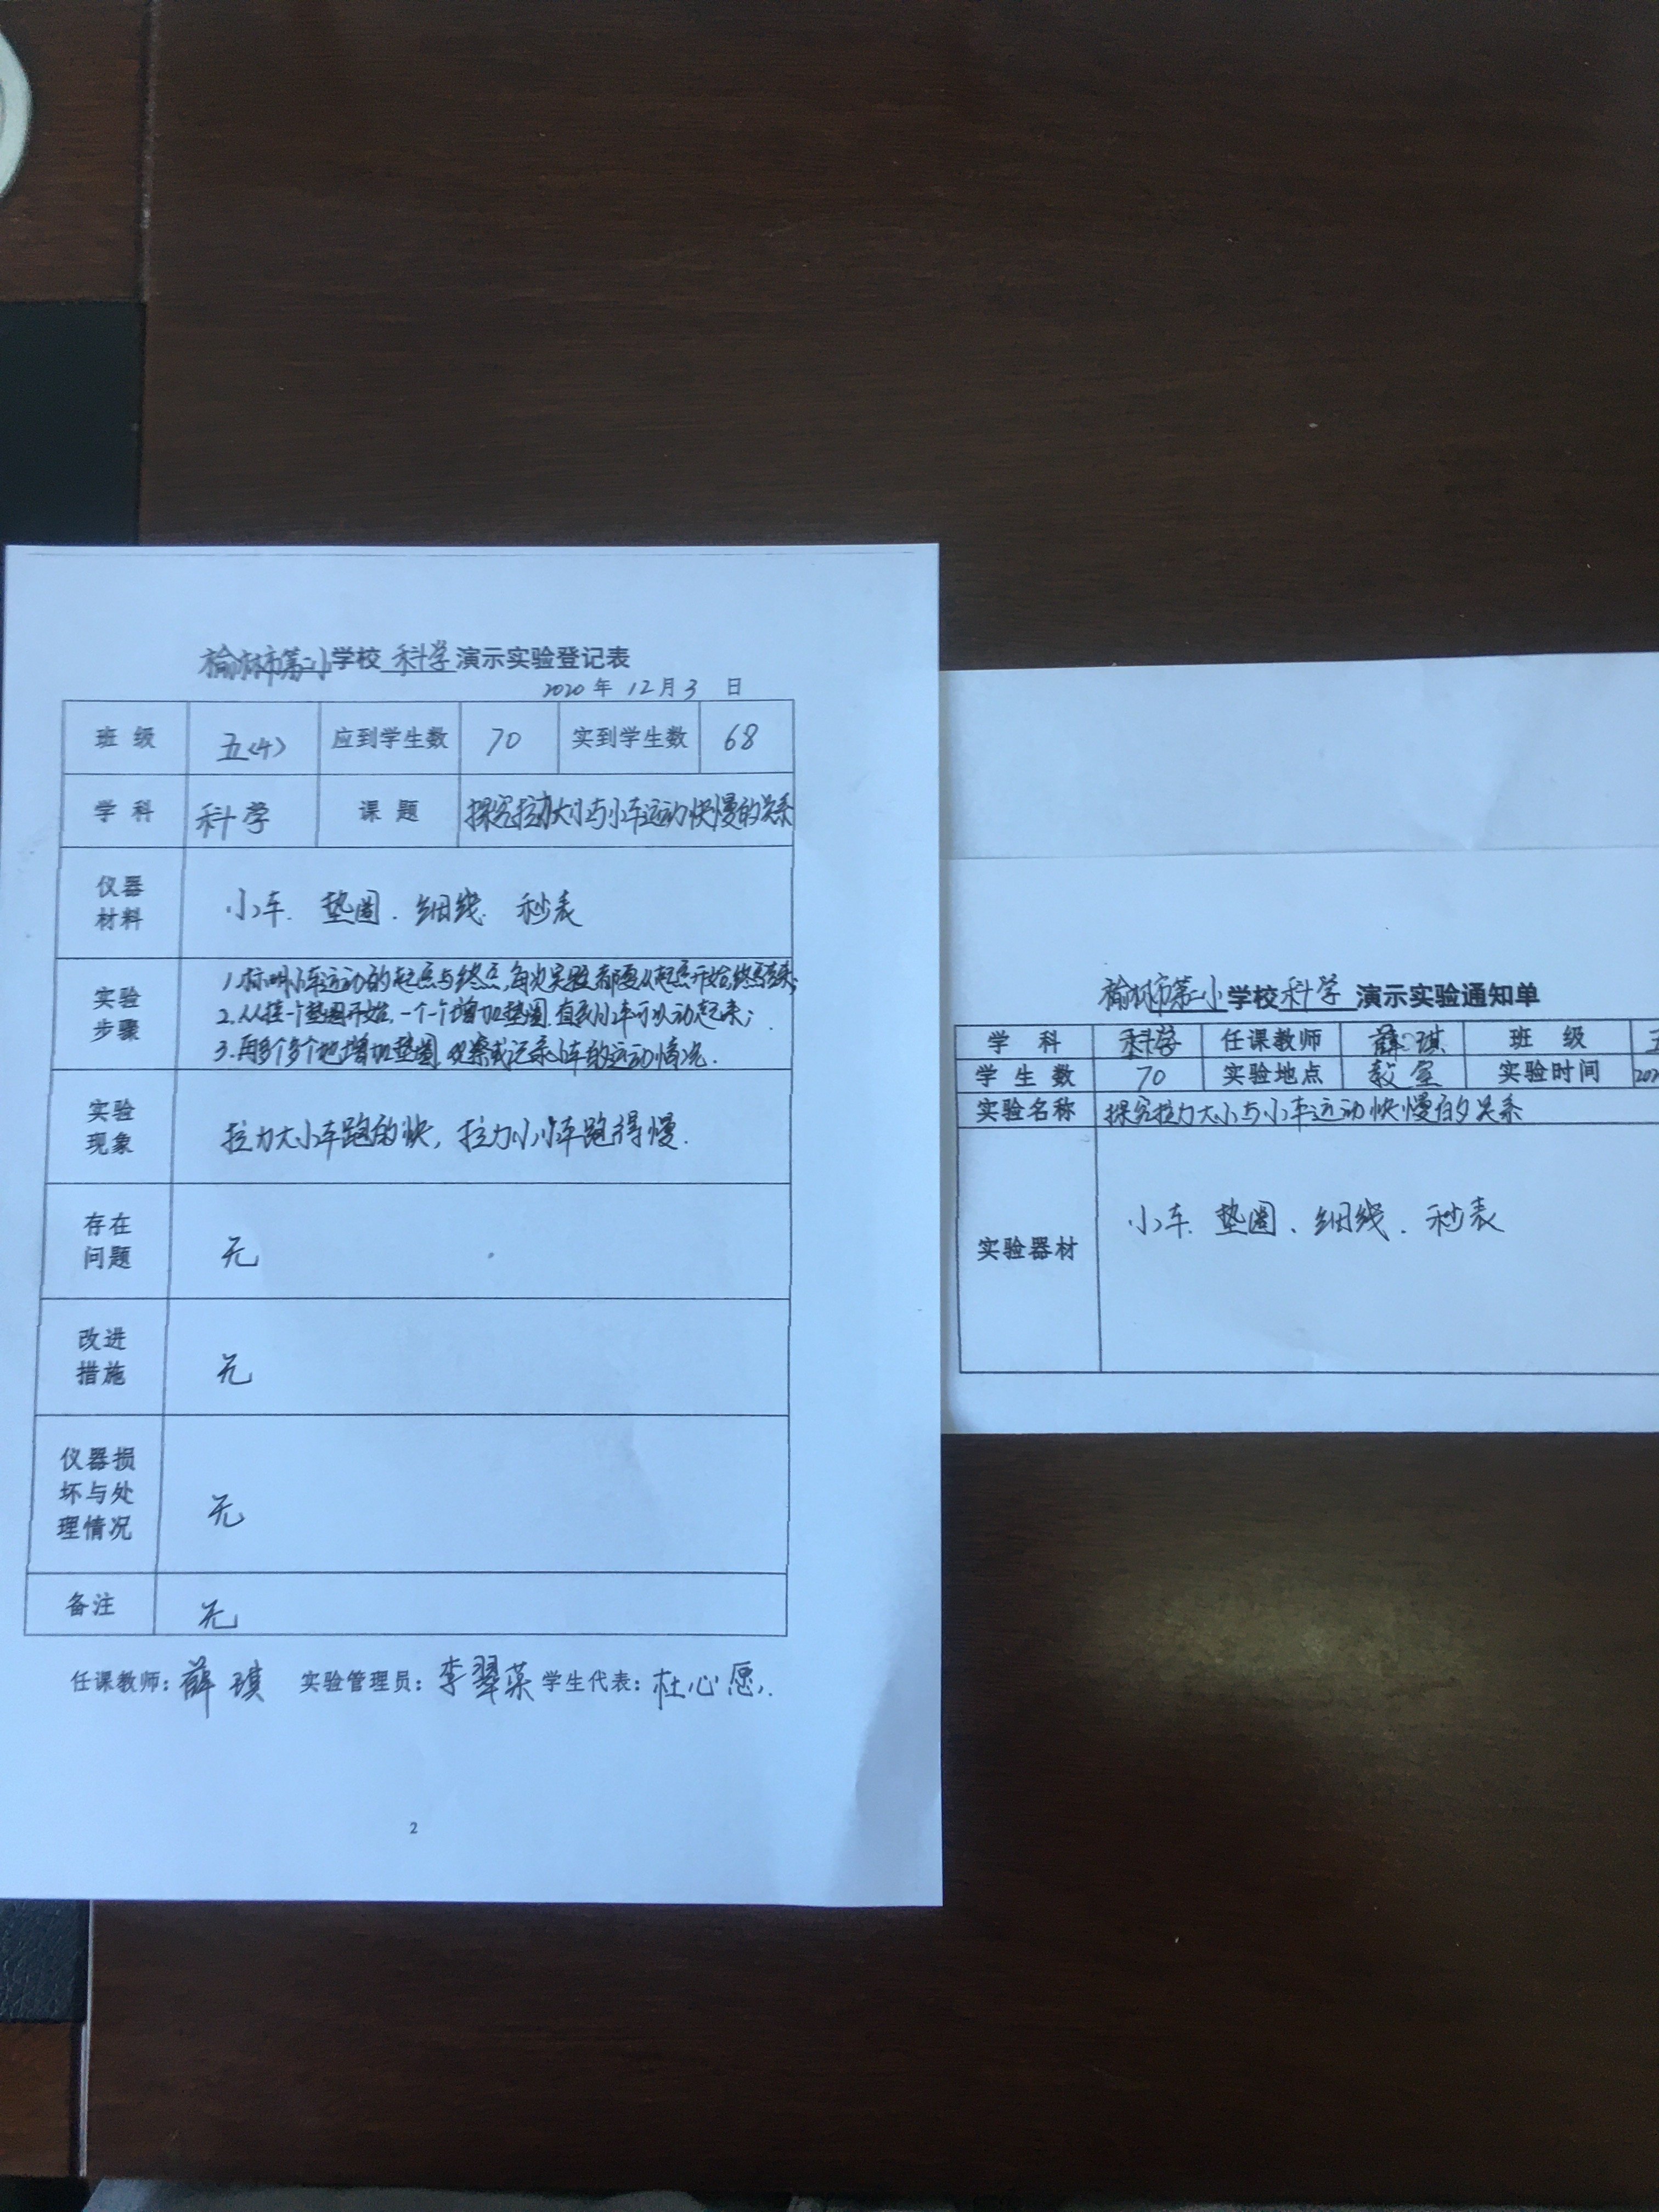 榆林市第二小学校 科学 演示实验登记表
2020 年 12 月 3 日
班 级 五(4) 应到学生数 70 实到学生数 68
学 科 科学 课 题 探究拉力大小与小车运动快慢的关系
仪器材料 小车、垫圈、细线、秒表
实验步骤 1.标明小车运动的起点与终点,每次实验都要从起点开始,终点结束;
2.从挂一个垫圈开始,一个一个增加垫圈,直到小车可以动起来;
3.再多个多个地增加垫圈,观察或记录小车的运动情况.
实验现象 拉力大小车跑的快,拉力小小车跑得慢.
存在问题 无
改进措施 无
仪器损坏与处理情况 无
备注 无
任课教师: 薛琪 实验管理员: 李翠英 学生代表: 杜心愿
2
榆林市第二小学校 科学 演示实验通知单
学 科 科学 任课教师 薛琪 班 级 五
学 生 数 70 实验地点 教室 实验时间
实验名称 探究拉力大小与小车运动快慢的关系
实验器材 小车、垫圈、细线、秒表